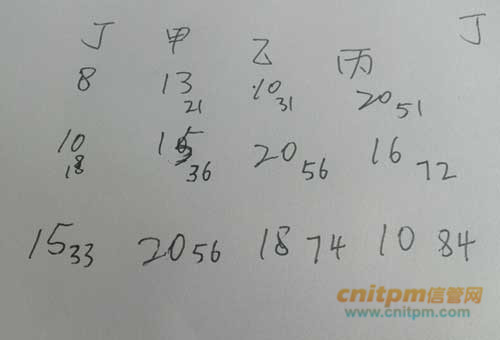 丁 甲 乙 丙 丁
8 13 21 10 31 20 51
10 18 36 20 56 16 72
15 33 20 56 18 74 10 84
cnitpm信管网
www.cnitpm.com